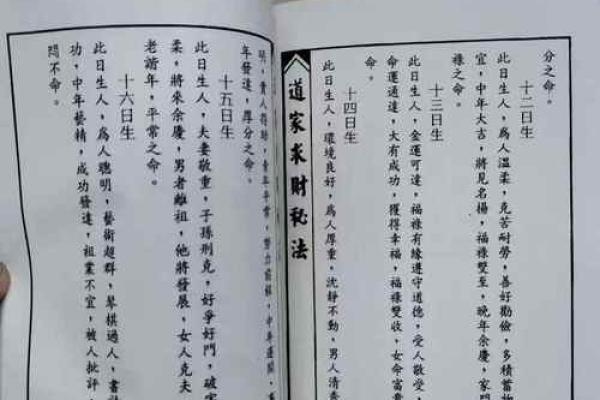 分之命。
十二日生
此日生人，為人溫柔，克苦耐勞，善好勤儉，多積蓄物
宜，中年大吉，將見名揚，福祿雙至，晚年余慶，家門
祿之命。
十三日生
此日生人，金運可達，福祿有緣遵守道德，受人敬愛，
命運通達，大有成功，獲得幸福，福祿雙收，女命富貴
命。
十四日生
此日生人，環境良好，為人厚重，沈靜不動，男人清貴
道家求財秘法
明，貴人得助，青年平常，努力前程，中年運開，
年發達，厚分之命。
十五日生
此日生人，夫妻敬重，子孫刑克，好爭好鬥，破家
柔，將來余慶，男者離祖，他將發展，女人克夫
老諧年，平常之命。
十六日生
此日生人，聰明，藝術超群，琴棋過人，書
功，中年藝精，成功發達，祖業不宜，被人批評，
悶不命。